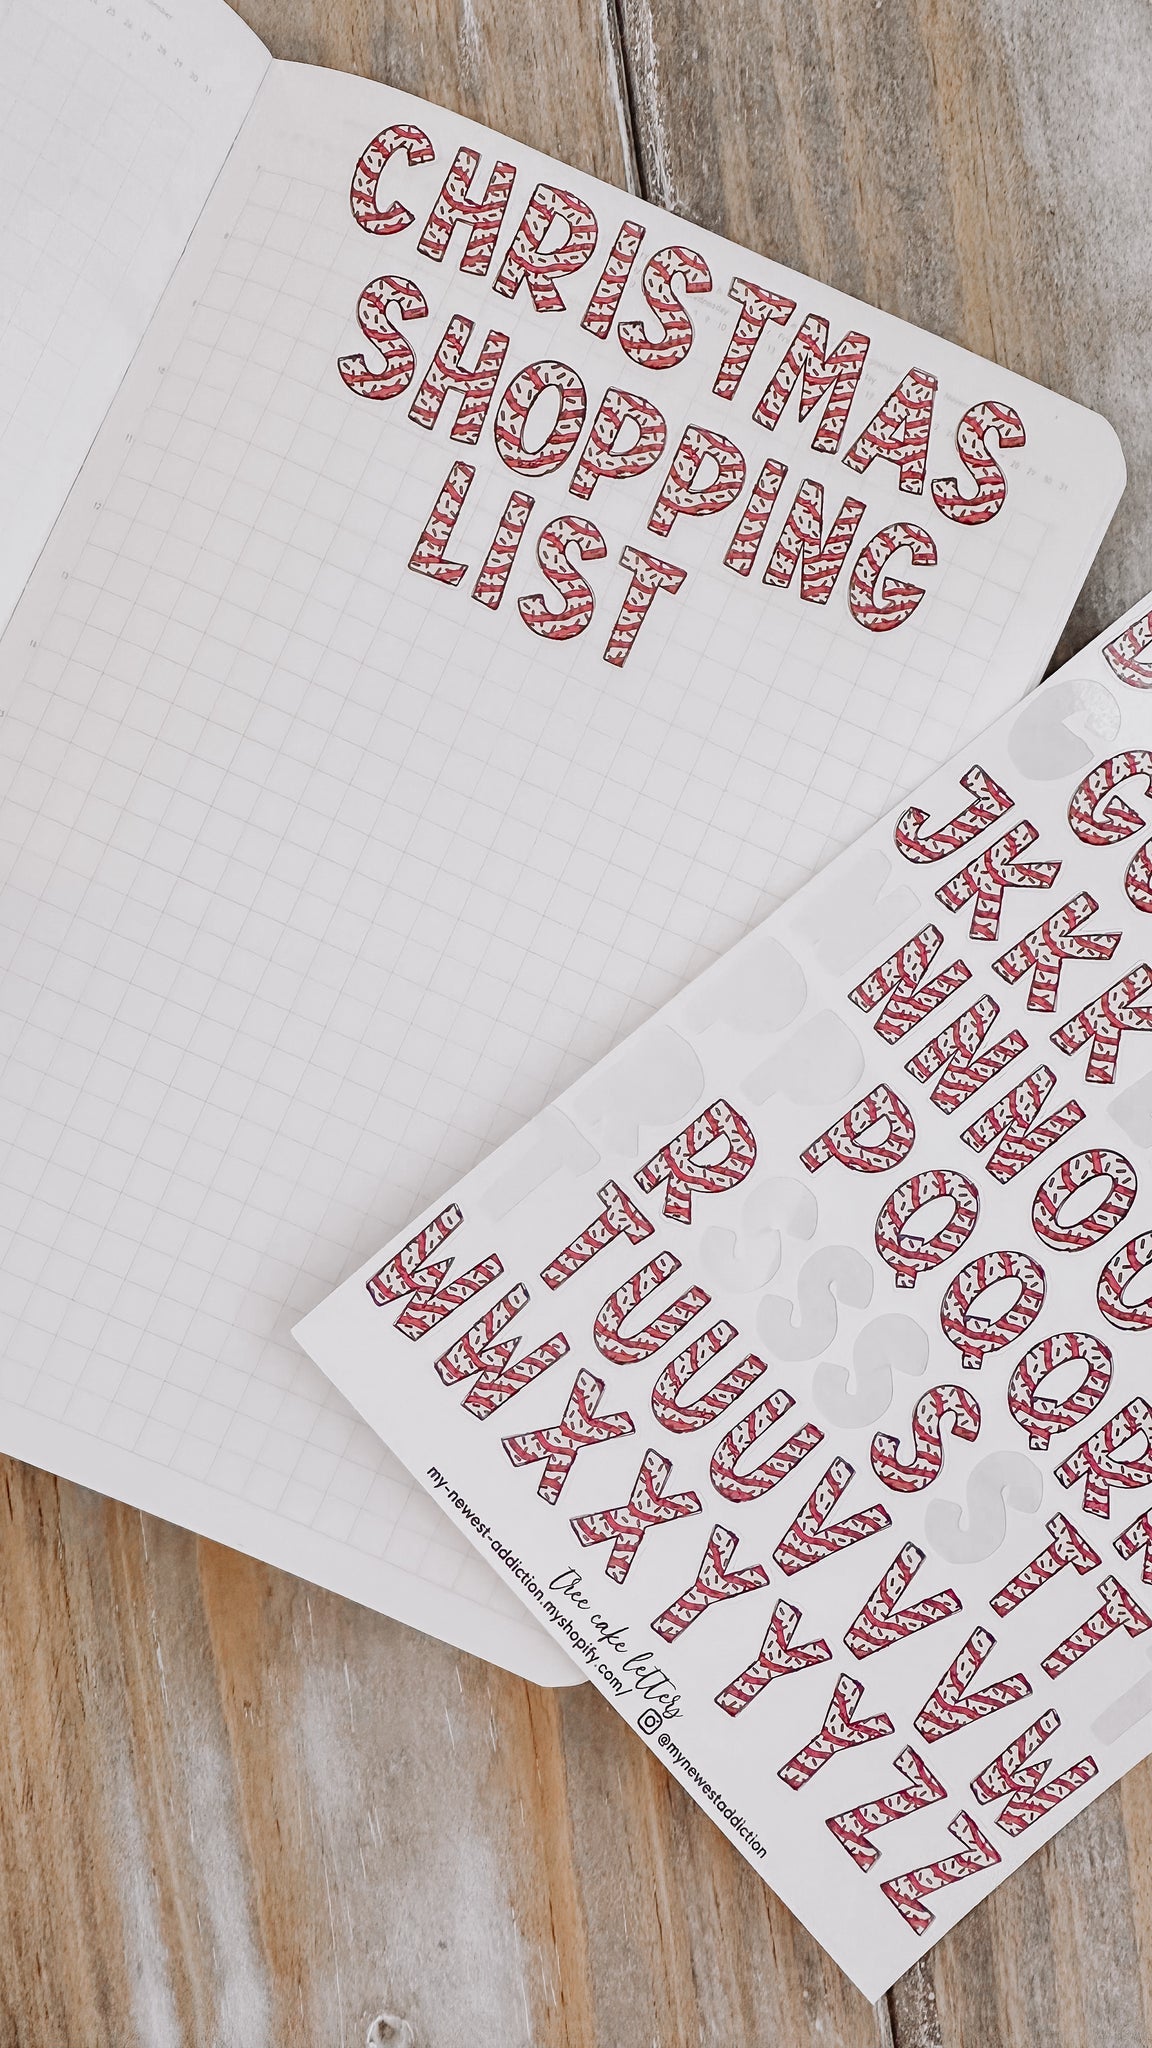 CHRISTMAS
SHOPPING
LIST
D
G
J K
K
K
N N N O
P Q Q Q R
R
S
T U U U V V V W
T T
W W X X Y Y Y Z Z
tree cake letters
my-newest-addiction.myshopify.com/ @mynewestaddiction